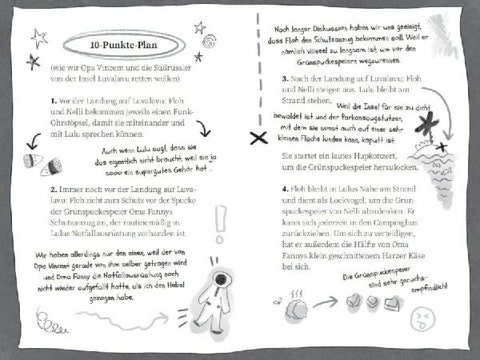 10-Punkte-Plan
(wie wir Opa Vincent und die Süßrüssler
von der Insel Luvalavu retten wollen)
1. Vor der Landung auf Luvalavu: Floh
und Nelli bekommen jeweils einen Funk-
Ohrstöpsel, damit sie miteinander und
mit Lulu sprechen können.
Auch wenn Lulu sagt, dass sie
das eigentlich nicht braucht, weil sie ja
sooo ein supergutes Gehör hat ..
2. Immer noch vor der Landung auf Luva-
lavu: Floh zieht zum Schutz vor der Spucke
der Grünspuckespeier Oma Fannys
Schutzanzug an, der routinemäßig in
Lulus Notfallausrüstung vorhanden ist.
Wir haben allerdings nur den einen, weil der von
Opa Vincent gerade von ihm selber getragen wird
und Oma Fanny die Notfallausrüstung noch
nicht wieder aufgefüllt hatte, als ich den Hebel
gezogen habe.
Nach langer Diskussion haben wir uns geeinigt,
dass Floh den Schutzanzug bekommen soll. Weil er
nämlich vieeel zu langsam ist um vor den
Grünspuckespeiern wegzurennen.
3. Nach der Landung auf Luvalavu: Floh
und Nelli steigen aus. Lulu bleibt am
Strand stehen.
Weil die Insel für sie zu dicht
bewaldet ist und der Parkanzugstutzen,
mit dem sie sonst auch auf einer sehr
kleinen Fläche landen kann, kaputt ist
Sie startet ein lautes Hupkonzert,
um die Grünspuckespeier herzulocken.
4. Floh bleibt in Lulus Nähe am Strand
und dient als Lockvogel, um die Grün-
spuckespeier von Nelli abzulenken. Er
kann sich jederzeit in den Campingbus
zurückziehen. Um sich zu verteidigen,
hat er außerdem die Hälfte von Oma
Fannys klein geschnittenem Harzer Käse
bei sich.
Die Grünspuckespeier
sind sehr geruchs-
empfindlich!